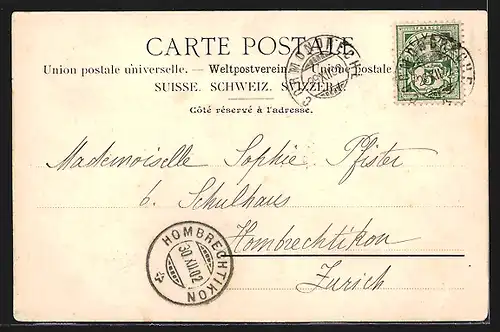 CARTE POSTALE
Union postale universelle. — Weltpostverein. — Unione postale
SUISSE. SCHWEIZ. SVIZZERA.
Côté réservé à l'adresse.
CORMONDRÈCHE
Mademoiselle Sophie Pfister
b. Schulhaus
Hombrechtikon
Zurich
HOMBRECHTIKON
30.XII.02